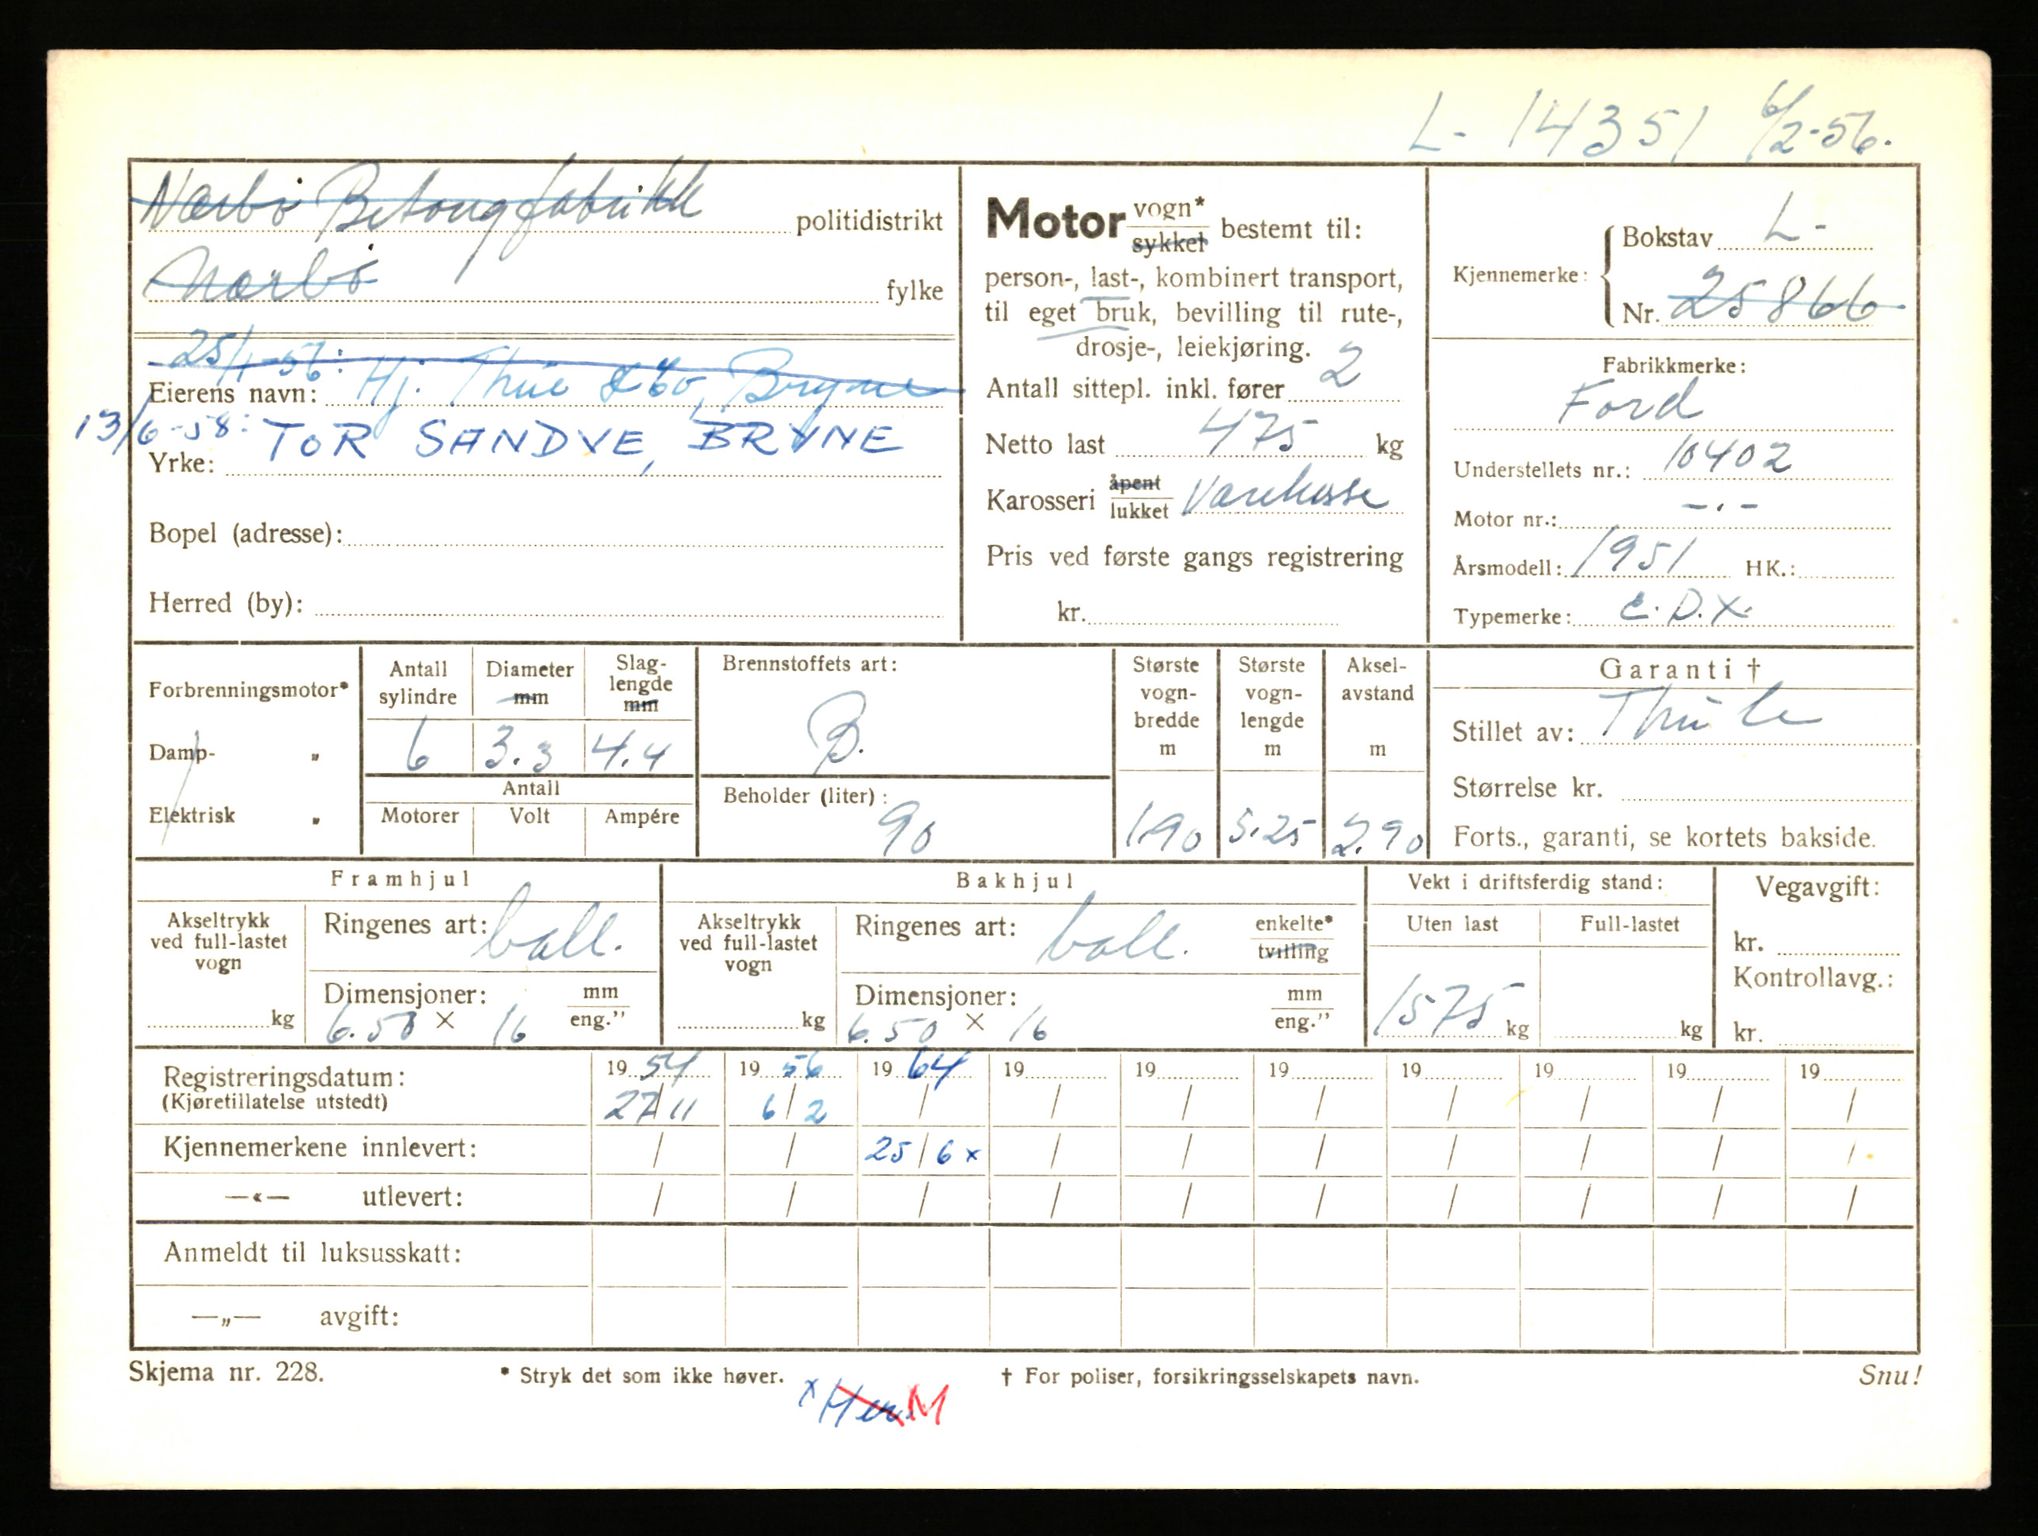 L- 14351 6/2-56.
Nærbø Betongfabrikk politidistrikt
Nærbø fylke
25/1-56:
Eierens navn: Hj. Thue & Co, Bryne
13/6-58: TOR SANDVE, BRYNE
Yrke:
Bopel (adresse):
Herred (by):
Motor vogn* sykkel bestemt til:
person-, last-, kombinert transport,
til eget bruk, bevilling til rute-,
drosje-, leiekjøring.
Antall sittepl. inkl. fører 2
Netto last 475 kg
Karosseri åpent lukket Varekasse
Pris ved første gangs registrering
kr.
Kjennemerke: Bokstav L-
Nr. 25866
Fabrikkmerke:
Ford
Understellets nr.: 10402
Motor nr.: -.-
Årsmodell: 1951 HK.:
Typemerke: E.D.X.
Forbrenningsmotor*
Damp- „
Elektrisk „
Antall sylindre
Diameter mm
Slag-lengde mm
6 3.3 4.4
Antall
Motorer Volt Ampére
Brennstoffets art:
B.
Beholder (liter):
90
Største vogn-bredde m
1.90
Største vogn-lengde m
5.25
Aksel-avstand m
2.90
Garanti †
Stillet av: Thule
Størrelse kr.
Forts., garanti, se kortets bakside.
Framhjul
Akseltrykk ved full-lastet vogn
kg
Ringenes art: ball.
Dimensjoner: mm eng."
6.50 × 16
Bakhjul
Akseltrykk ved full-lastet vogn
kg
Ringenes art: ball. enkelte* tvilling
Dimensjoner: mm eng."
6.50 × 16
Vekt i driftsferdig stand:
Uten last Full-lastet
1575 kg kg
Vegavgift:
kr.
Kontrollavg.:
kr.
Registreringsdatum: 19 54 19 56 19 64 19 19 19 19 19 19 19
(Kjøretillatelse utstedt) 27/11 6/2 / / / / / / / /
Kjennemerkene innlevert: / / 25/6 x / / / / / / /
—«— utlevert: / / / / / / / / / /
Anmeldt til luksusskatt:
—„— avgift:
Skjema nr. 228. * Stryk det som ikke høver. † For poliser, forsikringsselskapets navn. Snu!
x M